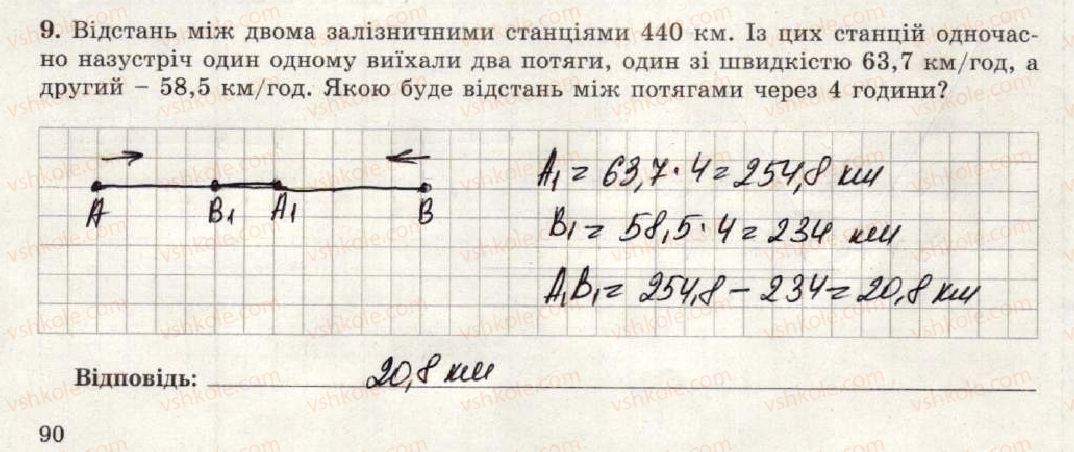 9. Відстань між двома залізничними станціями 440 км. Із цих станцій одночас-
но назустріч один одному виїхали два потяги, один зі швидкістю 63,7 км/год, а
другий – 58,5 км/год. Якою буде відстань між потягами через 4 години?
A B₁ A₁ B
A₁ = 63,7 · 4 = 254,8 км
B₁ = 58,5 · 4 = 234 км
A₁B₁ = 254,8 – 234 = 20,8 км
Відповідь: 20,8 км
90